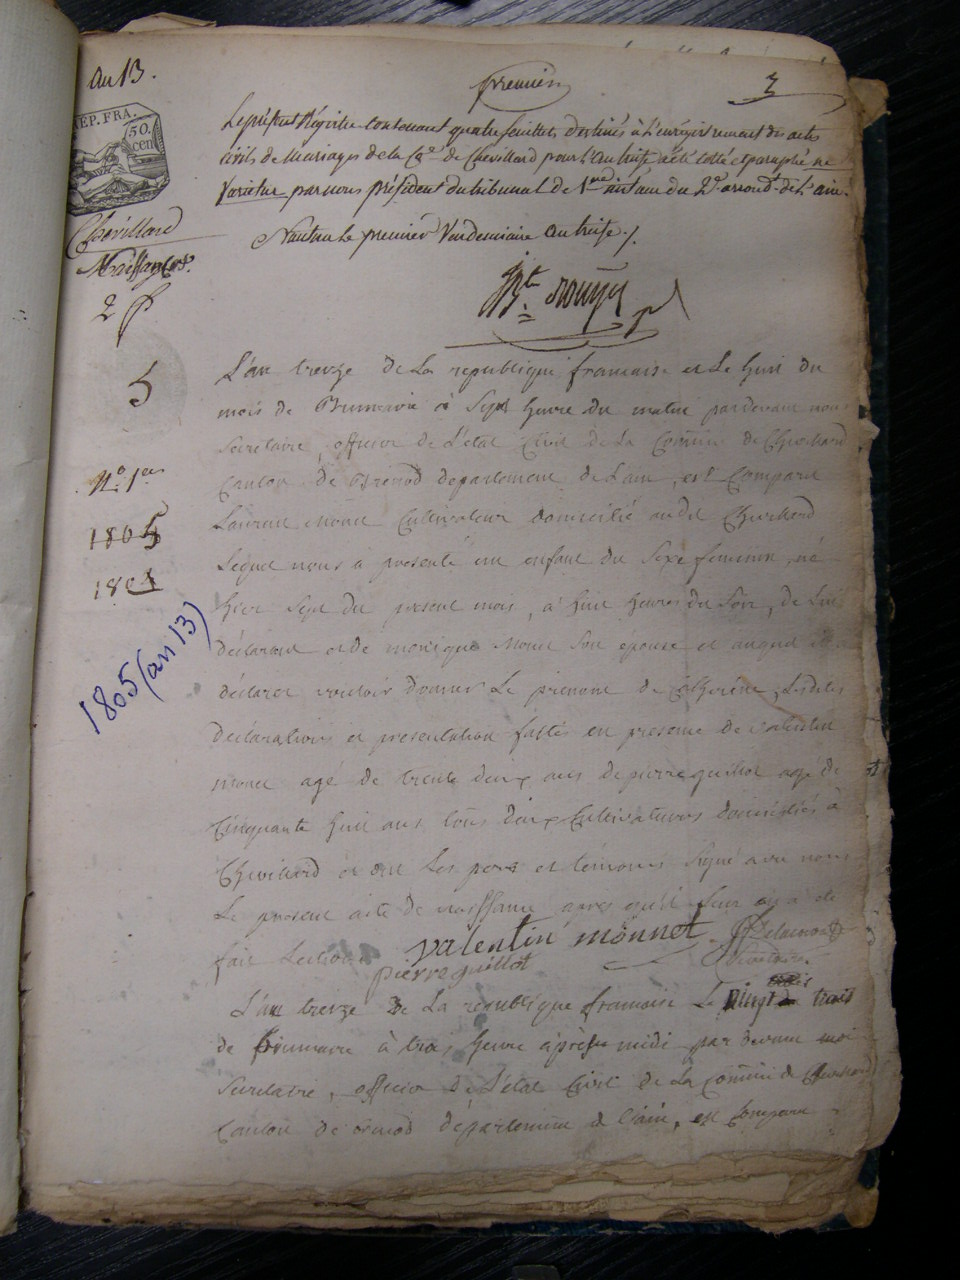 an 13.
premier
3
REP. FRA.
50.
cen
Le présent Régistre contenant quatre feuillets destinés à l'enregistrement des actes
civils de Mariages de la Cne de Chevillard pour l'an treize a été cotté et paraphé ne
varietur par nous président du tribunal de 1ere instance du 2e arrondt de l'ain.
Nantua le premier Vendemiaire an treize ./.
Chevillard
Naissances.
2 f
5
N.o 1er
1805
1804
1805 (an 13)
L'an treize de La republique francaise et Le huit du
mois de Brumaire à Sept heure du matin pardevant nous
Secretaire, officier de L'état Civil de La Commune de Chevillard
Canton de Brenod departement de L'ain, est Comparu
Laurent monet Cultivateur domicilié audit Chevillard
Lequel nous à presenté un enfant du Sexe feminin, né
hier Sept du present mois, à huit heures du Soir, de Lui
déclarant et de monique monet Son épouse et auquel il a
déclaré vouloir donner Le prenom de Catherine, Lesdites
déclaration et presentation faites en presence de valentin
monet agé de trente deux ans de pierre guillot agé de
Cinquante huit ans tous deux Cultivateurs domiciliés à
Chevillard et ont Les pere et témoins Signé avec nous
Le present acte de naissance après qu'il leur en a été
fait Lecture
valentin monnet
pierre guillot
Secretaire
L'an treize de La republique francaise Le vingt trois
de frimaire à trois heure après midi par devant moi
Secretaire, officier de L'état Civil de La Commune de Chevillard
Canton de brenod département de l'ain, est Comparu